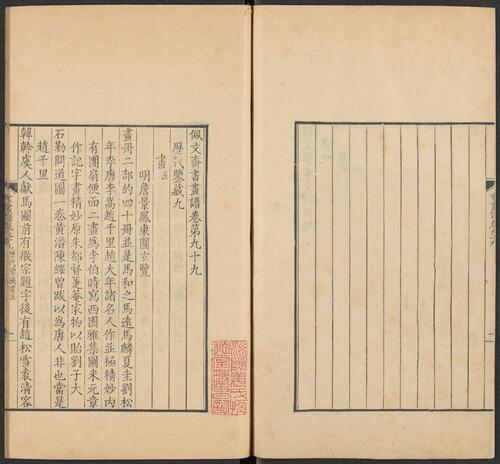 佩文齋書畫譜卷第九十九
歷代鑒藏九
畫五
明詹景鳳東圖玄覽
畫冊二部約四十冊並是馬和之馬遠馬麟夏圭劉松
年李唐李嵩趙千里趙大年諸名人作並極精妙內
有團扇便面二畫為李伯時寫西園雅集圖米元章
作記字畫精妙原朱都督菴家物以貽劉子大
石勒問道圖一卷黃溍陳繹曾跋以為唐人非也當是
趙千里
韓幹虞人獻馬圖前有徽宗題字後有趙松雪袁清容